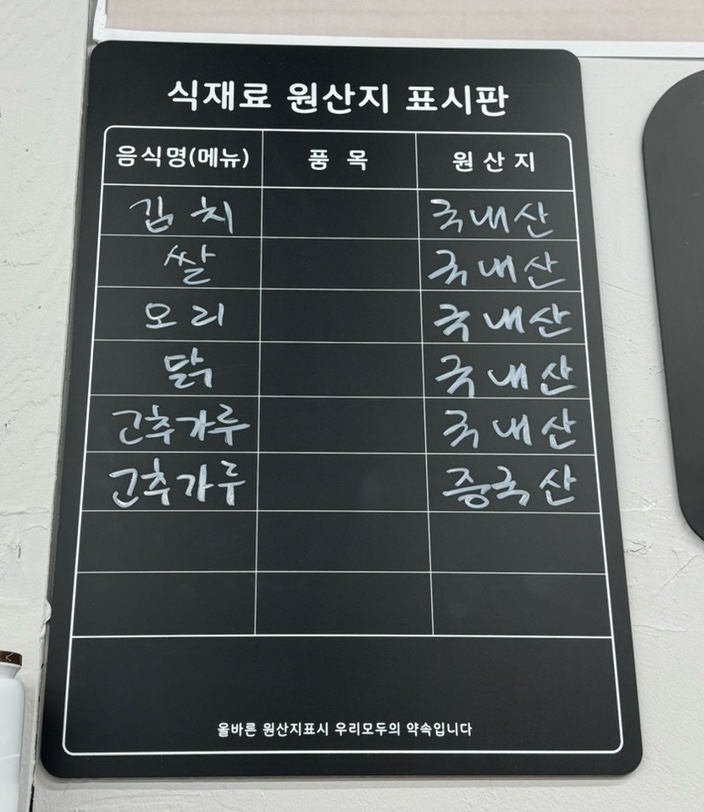 식재료 원산지 표시판
음식명(메뉴) 품 목 원 산 지
김 치 국내산
쌀 국내산
오 리 국내산
닭 국내산
고추가루 국내산
고추가루 중국산
올바른 원산지표시 우리모두의 약속입니다